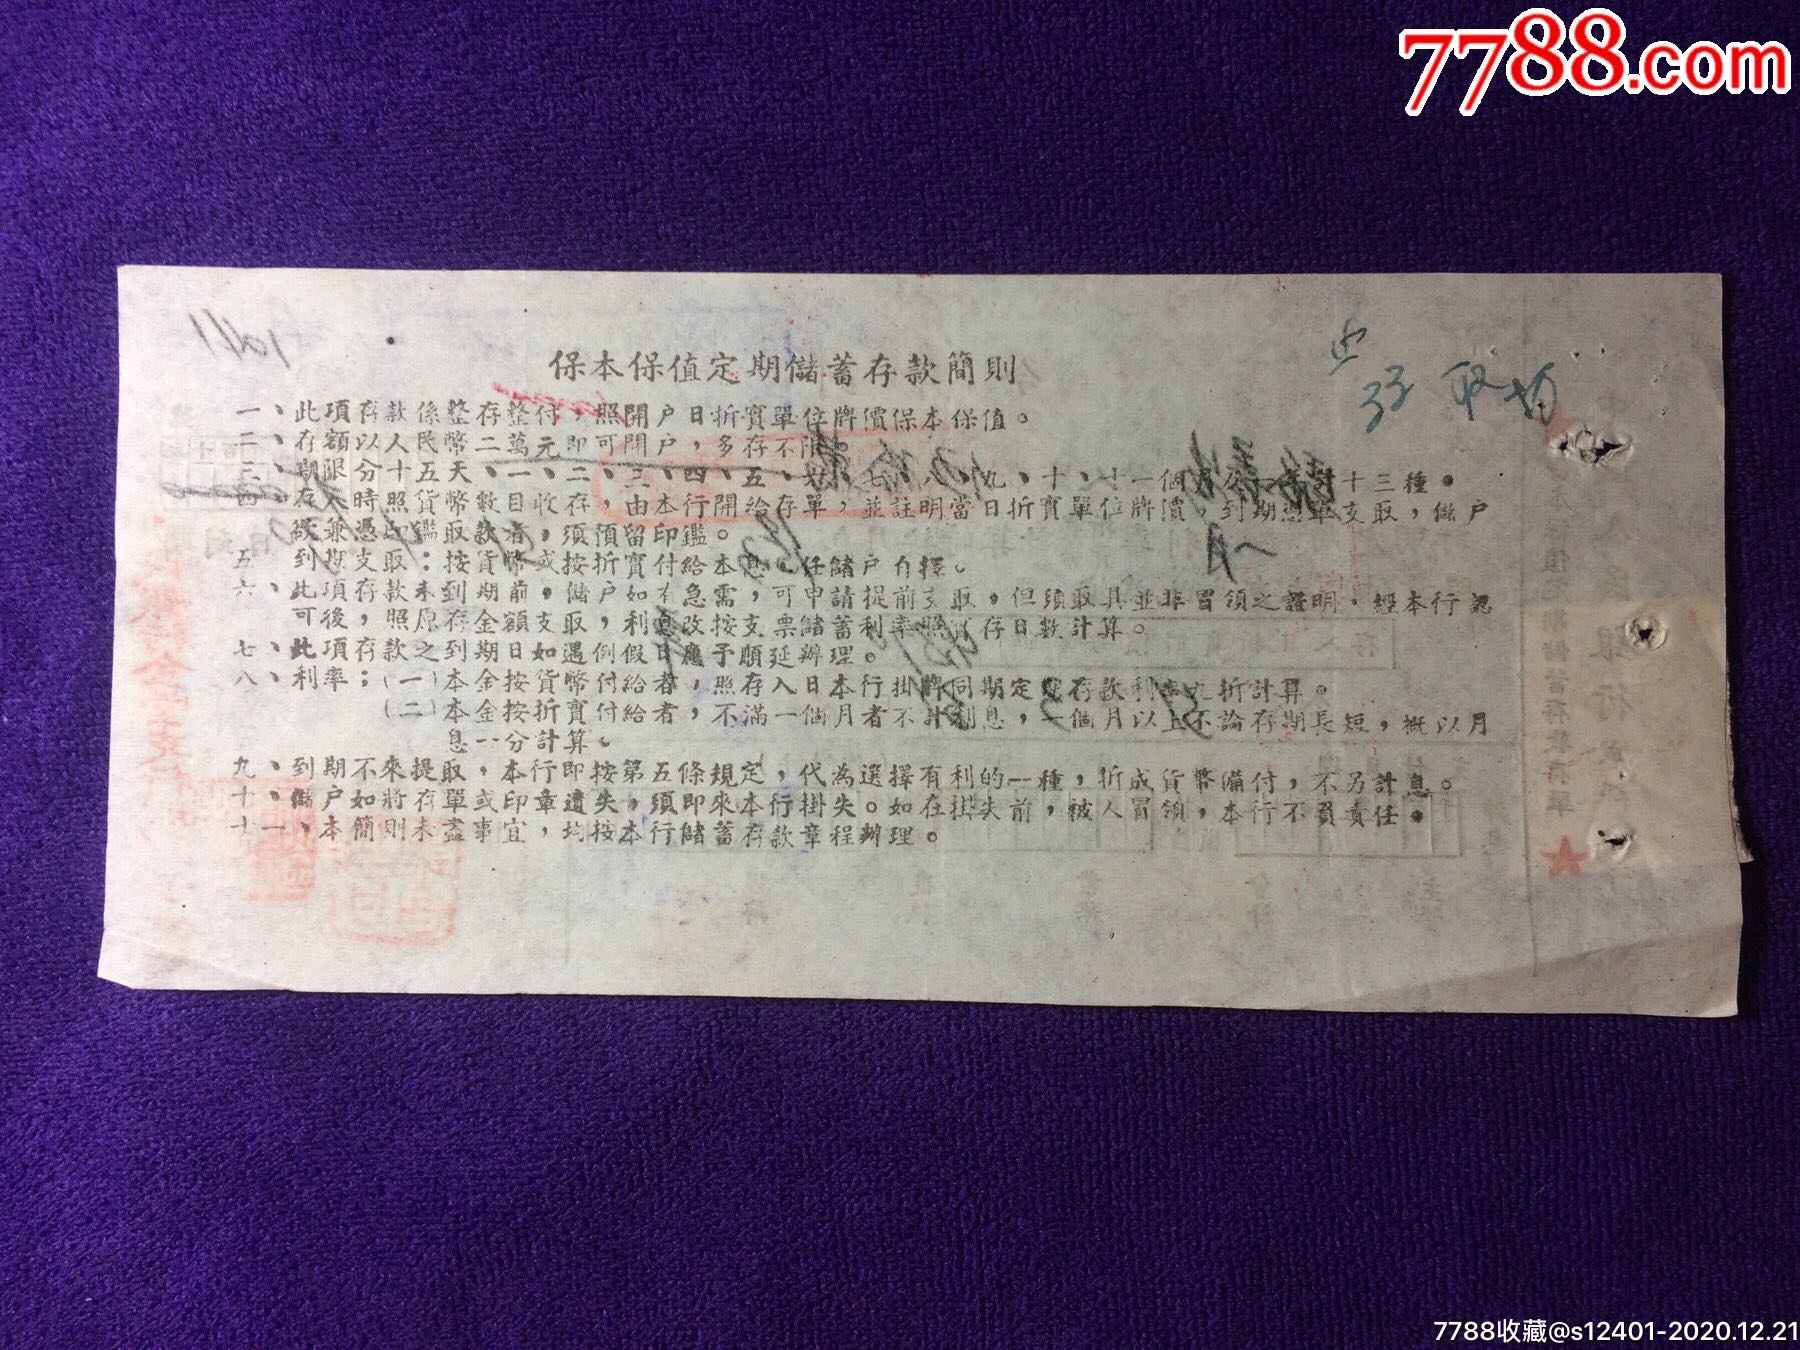 7788.com
保本保值定期儲蓄存款簡則
一、此項存款係整存整付，照開户日折實單位牌價保本保值。
二、存額以人民幣二萬元，即可開户，多存不限。
三、存期限分十五天、一、二、三、四、五、六、七、八、九、十、十一個月 十三種。
四、存入時照貨幣數目收存，由行開給存單，並註明當日折實單位牌價，到期憑單支取，儲户
欲兼憑印鑑取款者，須預留印鑑。
五、到期支取：按貨幣，或按折實付給本息，任儲户自擇。
六、此項存款未到期前，儲户如有急需，可申請提前支取，但須取具並非冒領之證明，經本行認
可後，照原存金額支取，利息改按支票儲蓄利率照實存日數計算。
七、此項存款之到期日如遇例假日應予順延辦理。
八、利率；(一)本金按貨幣付給者，照存入日本行掛牌同期定期存款利率九折計算。
(二)本金按折實付給者，不滿一個月者不計利息，一個月以上不論存期長短，概以月
息一分計算。
九、到期不來提取，本行即按第五條規定，代為選擇有利的一種，折成貨幣備付，不另計息。
十、儲户如將存單或印章遺失，須即來本行掛失。如在掛失前，被人冒領，本行不負責任。
十一、本簡則未盡事宜，均按本行儲蓄存款章程辦理。
7788收藏@s12401-2020.12.21